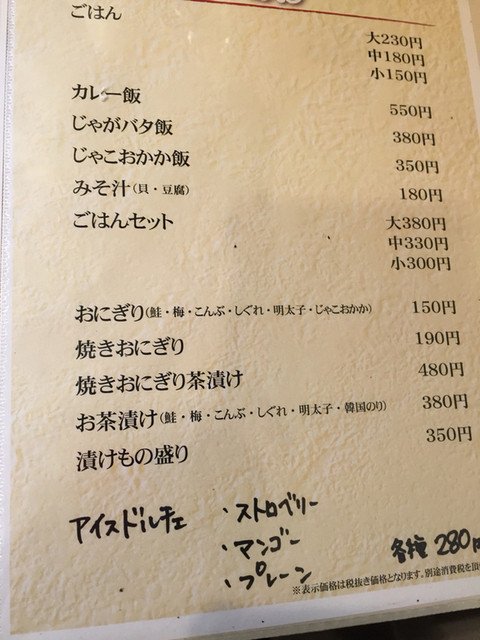 ごはん
大230円
中180円
小150円
カレー飯 550円
じゃがバタ飯 380円
じゃこおかか飯 350円
みそ汁(貝・豆腐) 180円
ごはんセット 大380円
中330円
小300円
おにぎり(鮭・梅・こんぶ・しぐれ・明太子・じゃこおかか) 150円
焼きおにぎり 190円
焼きおにぎり茶漬け 480円
お茶漬け(鮭・梅・こんぶ・しぐれ・明太子・韓国のり) 380円
漬けもの盛り 350円
アイスドルチェ ・ストロベリー
・マンゴー
・プレーン 各種 280円
※表示価格は税抜き価格となります。別途消費税を